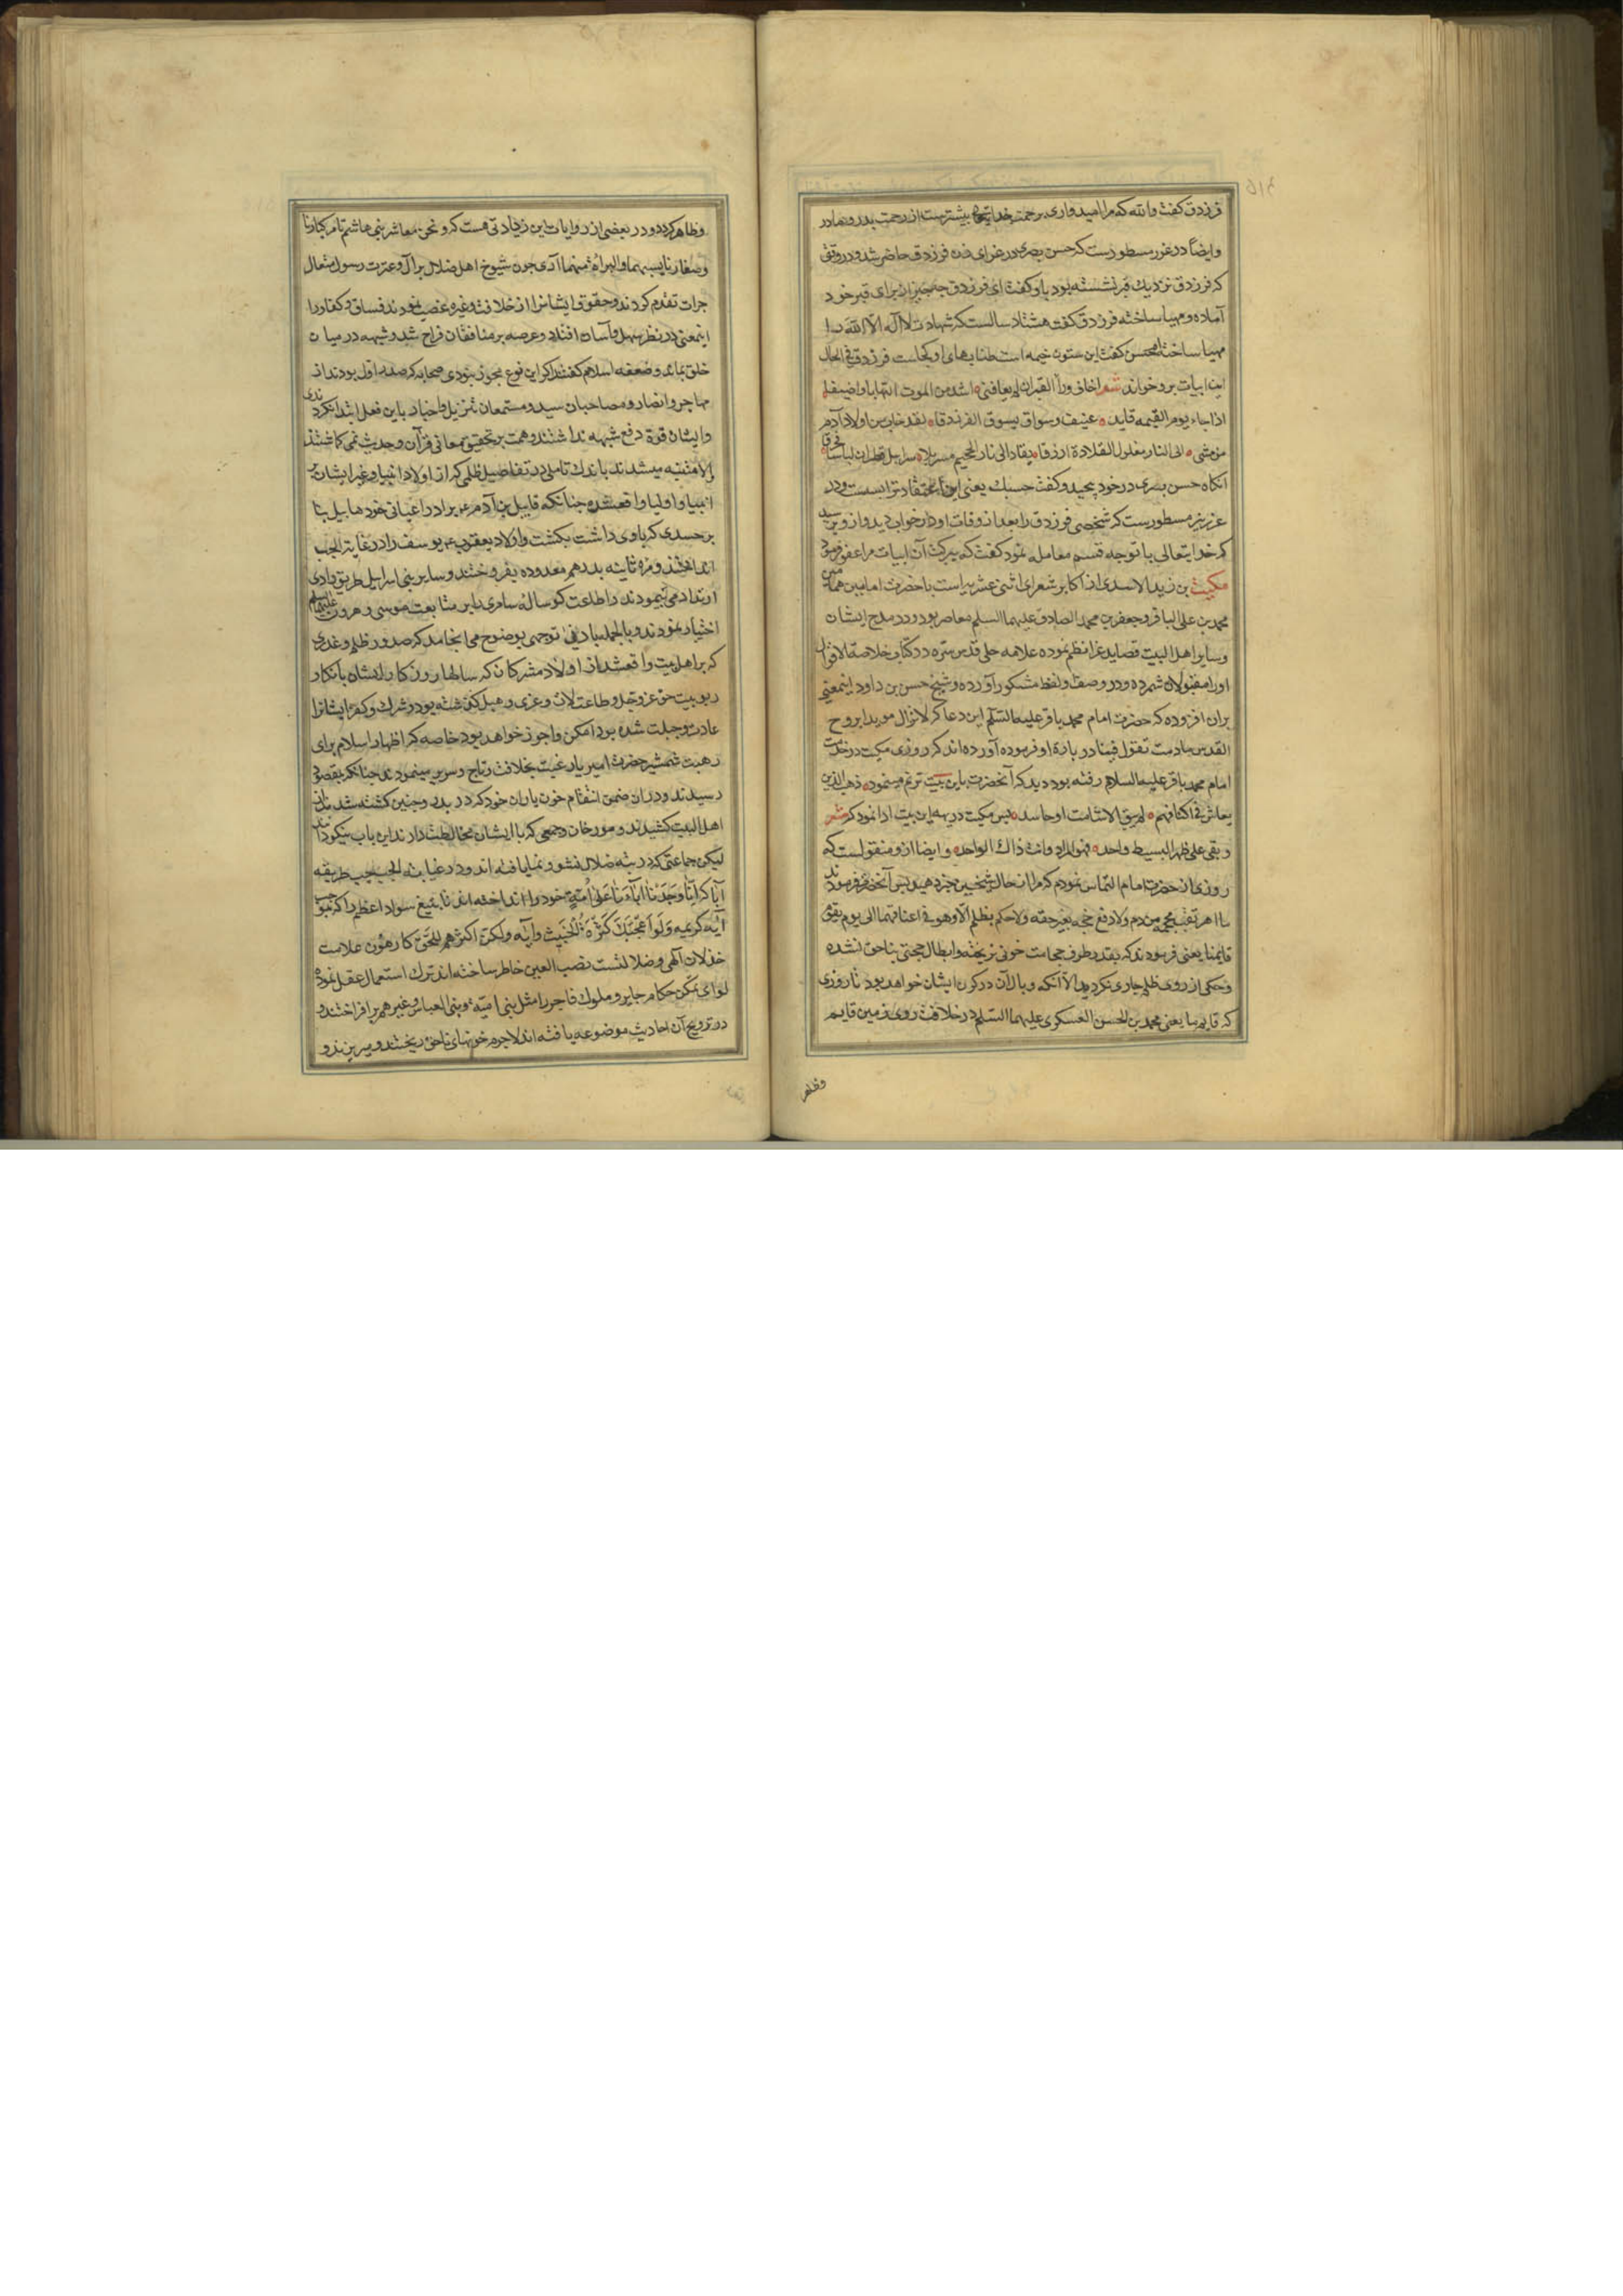 فرزدق کفت والله که مرا امیدواری برحمت خدایتعالی بیشترست از رحمت بدر و مادر
وایضاً در غرر مسطورست که حسن بصری در عزای زن فرزدق حاضر شد و در وقتی
که فرزدق نزدیك قبر نشسته بود باو کفت ای فرزدق چه چیز از برای قبر خود
آماده و مهیا ساخته فرزدق کفت هشتاد سالست که شهادت لا اله الا الله را
مهیا ساخته‌ام حسن کفت این ستون خیمه است طنابهای او کجاست فرزدق فی الحال
این ابیات برو خواند شعر اخاف ورآ القبران لم یعافنی اشد من الموت التهابا واضیقا
اذا جاء یوم القیمه قاید عنیف وسواق یسوق الفرزدقا لقد خاب من اولاد آدم
من مشی الی النار مغلول القلادة ازرقا یقاد الی نار الجحیم مسربلا سرابیل قطران لباسا محرقا
آنکاه حسن بصری در خود پیچید و کفت حسبك یعنی این اعتقاد ترا بسست و در
غرر نیز مسطورست که شخصی فرزدق را بعد از وفات او در خواب دید و ازو پرسید
که خدایتعالی با تو چه قسم معامله نمود کفت که ببرکت آن ابیات مرا عفو فرمود
کمیت بن زید الاسدی از اکابر شعرای اثنی عشریه است با حضرت امامین همامین
محمد بن علی الباقر و جعفر بن محمد الصادق علیهما السلم معاصر بود و در مدح ایشان
وسایر اهل البیت قصاید غرا نظم نموده علامه حلی قدس سره در کتاب خلاصة الاقوال
اورا مقبولان شمرده و در وصف او لفظ مشکور آورده و شیخ حسن بن داود اینمعنی
بران افزوده که حضرت امام محمد باقر علیه السلم این دعا که لا تزال مویدا بروح
القدس مادمت تقول فینا در باره او فرموده آورده اند که روزی کمیت در خدمت
امام محمد باقر علیه السلام رفته بود دید که آنحضرت باین بیت ترنم مینمود ذهب الذین
یعاش فی اکنافهم لم یبق الا شامت او حاسد پس کمیت در بدیهه این بیت ادا نمود که شعر
وبقی علی ظهر البسیط واحد فهو المراد وانت ذاك الواحد و ایضا ازو منقولست که
روزی از حضرت امام التماس نمودم که مرا از حال شیخین خبر دهید پس آنحضرت فرمودند
ما اهرقت محجمه من دم ولا دفع حجر بغیر حقه ولا حکم بظلم الا وهو فی اعناقهما الی یوم یقوم
قایمنا یعنی فرمودند که بقدر ظرف حجامت خونی نریخته و ابطال حجتی بناحق نشده
و حکمی از روی ظلم جاری نکردید الا آنکه وبال آن در کردن ایشان خواهد بود تا روزی
که قایم ما یعنی محمد بن الحسن العسکری علیهما السلم در خلافت روی زمین قایم
وظاهر
وظاهر کردد و در بعضی از روایات این زیادتی هست که و نحن معاشر بنی هاشم نامر کبارنا
وصغارنا بسبهما والبراة منهما آری چون شیوخ اهل ضلال بر آل و عترت رسول متعال
جرات تقدم کردند و حقوق ایشانرا از خلافت و غیره غصب نمودند فساق و کفار را
اینمعنی در نظر سهل و آسان افتاد و عرصه بر منافقان فراخ شد و شبهه در میان
خلق بماند و ضعفه اسلام کفتند اکر این نوع مجوز نبودی صحابه که صدر اول بودند از
مهاجر و انصار و مصاحبان سید و مستمعان تنزیل و اخبار باین فعل ابتدا نکردندی
و ایشان قوة دفع شبهه نداشتند و همت بر تحقیق معانی قرآن و حدیث نمی کماشتند
و الا متنبه میشدند باندك تاملی در تفاصیل ظلمی که از اولاد انبیا و غیر ایشان بر
انبیا و اولیا واقعشده چنانکه قابیل بن آدم ع برادر اعیانی خود هابیل بنا
بر حسدی که باوی داشت بکشت و اولاد یعقوب ع یوسف را در غیابة الجب
انداختند و مرة ثانیه بدرهم معدوده بفروختند و سایر بنی اسراییل طریق وادی
ارتداد می پیمودند و اطاعت کوساله سامری را بر متابعت موسی و هرون علیهما السلم
اختیار نمودند و بالجمله بادنی توجهی بوضوح می انجامد که صدور ظلم و غدری
که بر اهل بیت واقعشد از اولاد مشرکان که سالها روزکار ایشان بانکار
ربوبیت حق عزوجل و طاعت لات و عزی و هبل کذشته بود و شرك و کفر ایشانرا
عادت و جبلت شده بود امکن و اجوز خواهد بود خاصه که اظهار اسلام برای
رهبت شمشیر حضرت امیر یا رغبت بخلافت و تاج و سریر مینمودند چنانکه بمقصود
رسیدند و در آن ضمن انتقام خون یاران خود که در بدر و حنین کشته شدند از
اهل البیت کشیدند و مورخان و جمعی که با ایشان مخالطت دارند این باب نیکو دانند
لیکن جماعتی که در تیه ضلال نشو و نما یافته اند و در غیابة الجب طریقه
آبا که انا وجدنا اباءنا علی امة خود را انداخته اند تا بتیغ سواد اعظم را که بموجب
آیه کریمه ولو اعجبك کثرة الخبیث و آیه ولکن اکثرهم للحق کارهون علامت
خذلان آلهی و ضلالتست نصب العین خاطر ساخته اند ترك استعمال عقل نموده
لوای تمکن حکام جایر و ملوك فاجر را مثل بنی امیه و بنی العباس و غیرهم بر افراختند و
در ترویج آن احادیث موضوعه یافته اند لاجرم خونهای ناحق ریختند و میریزند و